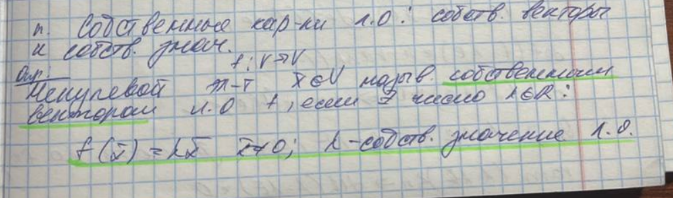 п. Собственные хар-ки л.О: собств. векторы
и собств. знач.
f: V→V
Опр.
Ненулевой эл-т x̄∈V назыв собственным
вектором л.О f, если ∃ число λ∈R:
f(x̄)=λx̄ x̄≠0; λ-собств. значение л.О.